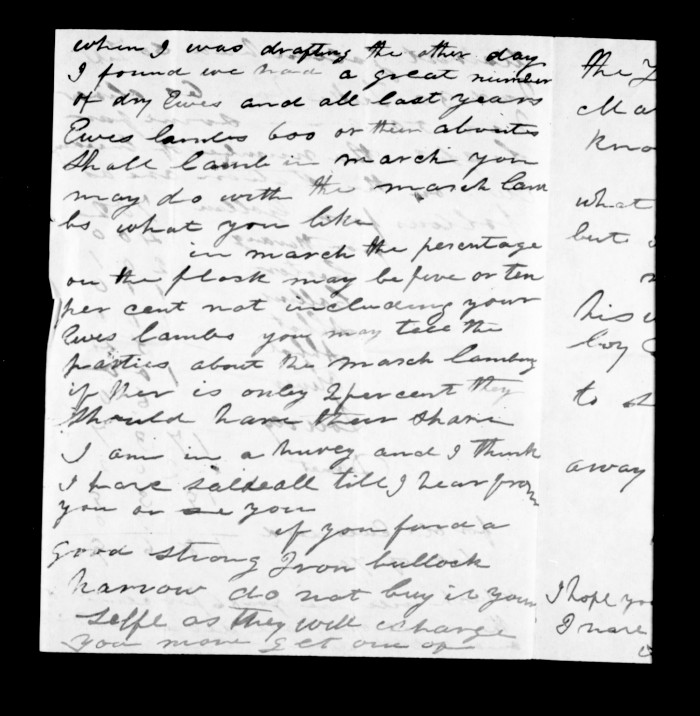 when I was drafting the other day
I found we had a great number
of dry Ewes and all last years
Ewes lambes 600 or them aboutes
Shall lamb in march you
may do with the march lam
bs what you like
in march the persentage
on the flock may be five or ten
per cent not including your
Ewes lambes you may tell the
parties about the march lambing
if ther is only 2 per cent they
should have their share
I am in a hurey and I think
I have saide all till I hear from
you or see you
if you find a
good strong Iron bullock
harrow do not buy it your
selfe as they will charge
you more get one of
the
Ma
kno
what
but
his
boy
to
away
I hope you
I have